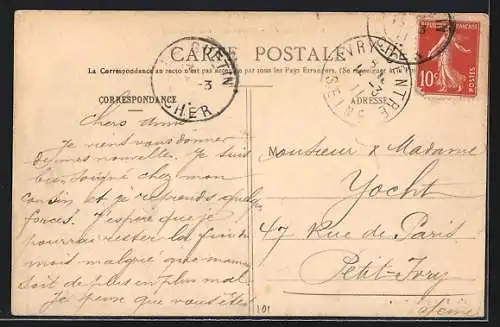 CARTE POSTALE
La Correspondance au recto n'est pas acceptée par tous les Pays Étrangers. (Se renseigner
CORRESPONDANCE
ADRESSE
Chers amis
Je viens vous donner
de mes nouvelles. Je suis
bien soigné chez mon
cousin et je reprends quelques
forces. J'espère que je
pourrai rester la fin du
mois malgré que maman
soit de plus en plus mal.
Je pense que vous êtes
Monsieur & Madame
Yocht
47 Rue de Paris
Petit-Ivry
Seine
CHER
IVRY-CENTRE
SEINE
RÉPUBLIQUE FRANÇAISE
10c
POSTES
101